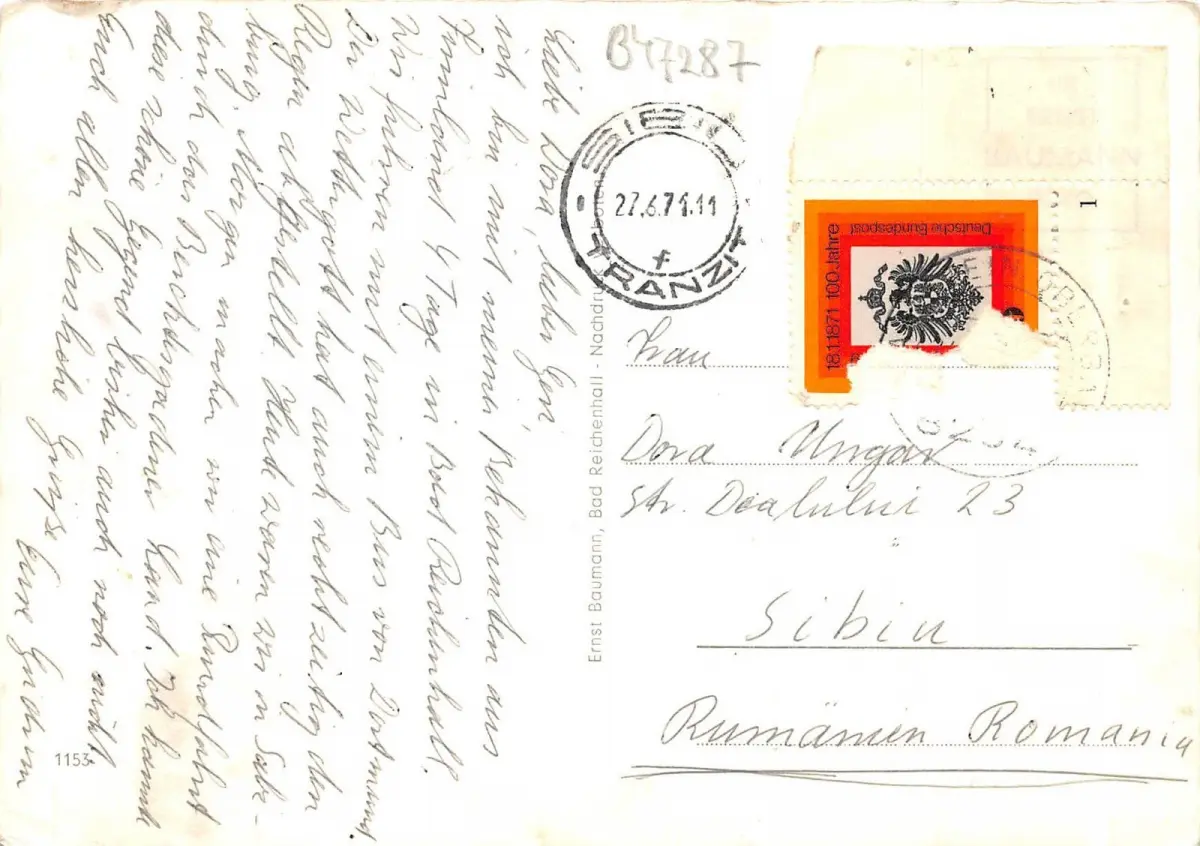 B47287
Liebe Dora, lieber Geri,
ich bin mit meinen Bekannten aus
4 Tage in Bad Reichenhall.
Wir fuhren mit einem Bus von Dortmund
Der Wettergott hat auch rechtzeitig den
Regen abgestellt. Heute waren wir in Salz-
burg. Morgen machen wir eine Rundfahrt
durch das Berchtesgadener Land. Ich kannte
diese schöne Gegend bisher auch noch nicht
Euch allen herzliche Grüsse
Eure Gudrun
1153
Ernst Baumann, Bad Reichenhall - Nachdruck
SIBIU
27.6.71.11
TRANZIT
f
Deutsche Bundespost
18.1.1871 100 Jahre
1
Frau
Dora Ungar
Str. Dealului 23
Sibiu
Rumänien Romania